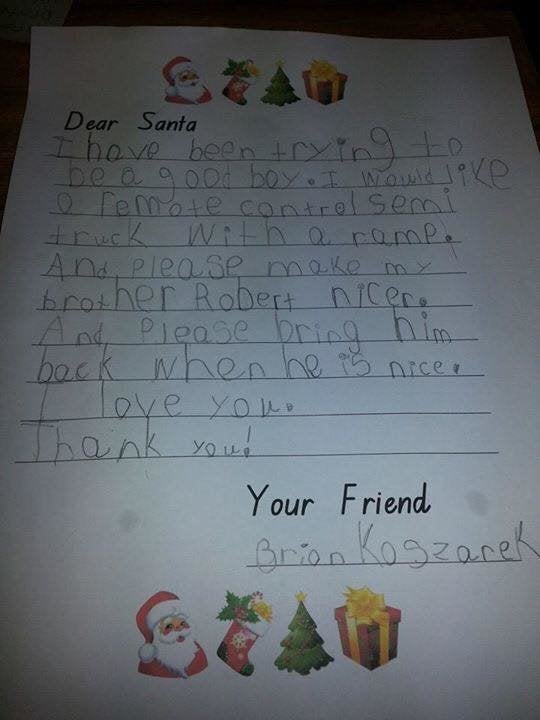 Dear Santa
I have been trying to
be a good boy. I would like
a remote control semi
truck with a ramp.
And please make my
brother Robert nicer.
And Please bring him
back when he is nice.
I love you.
Thank you!
Your Friend
Brian Koszarek